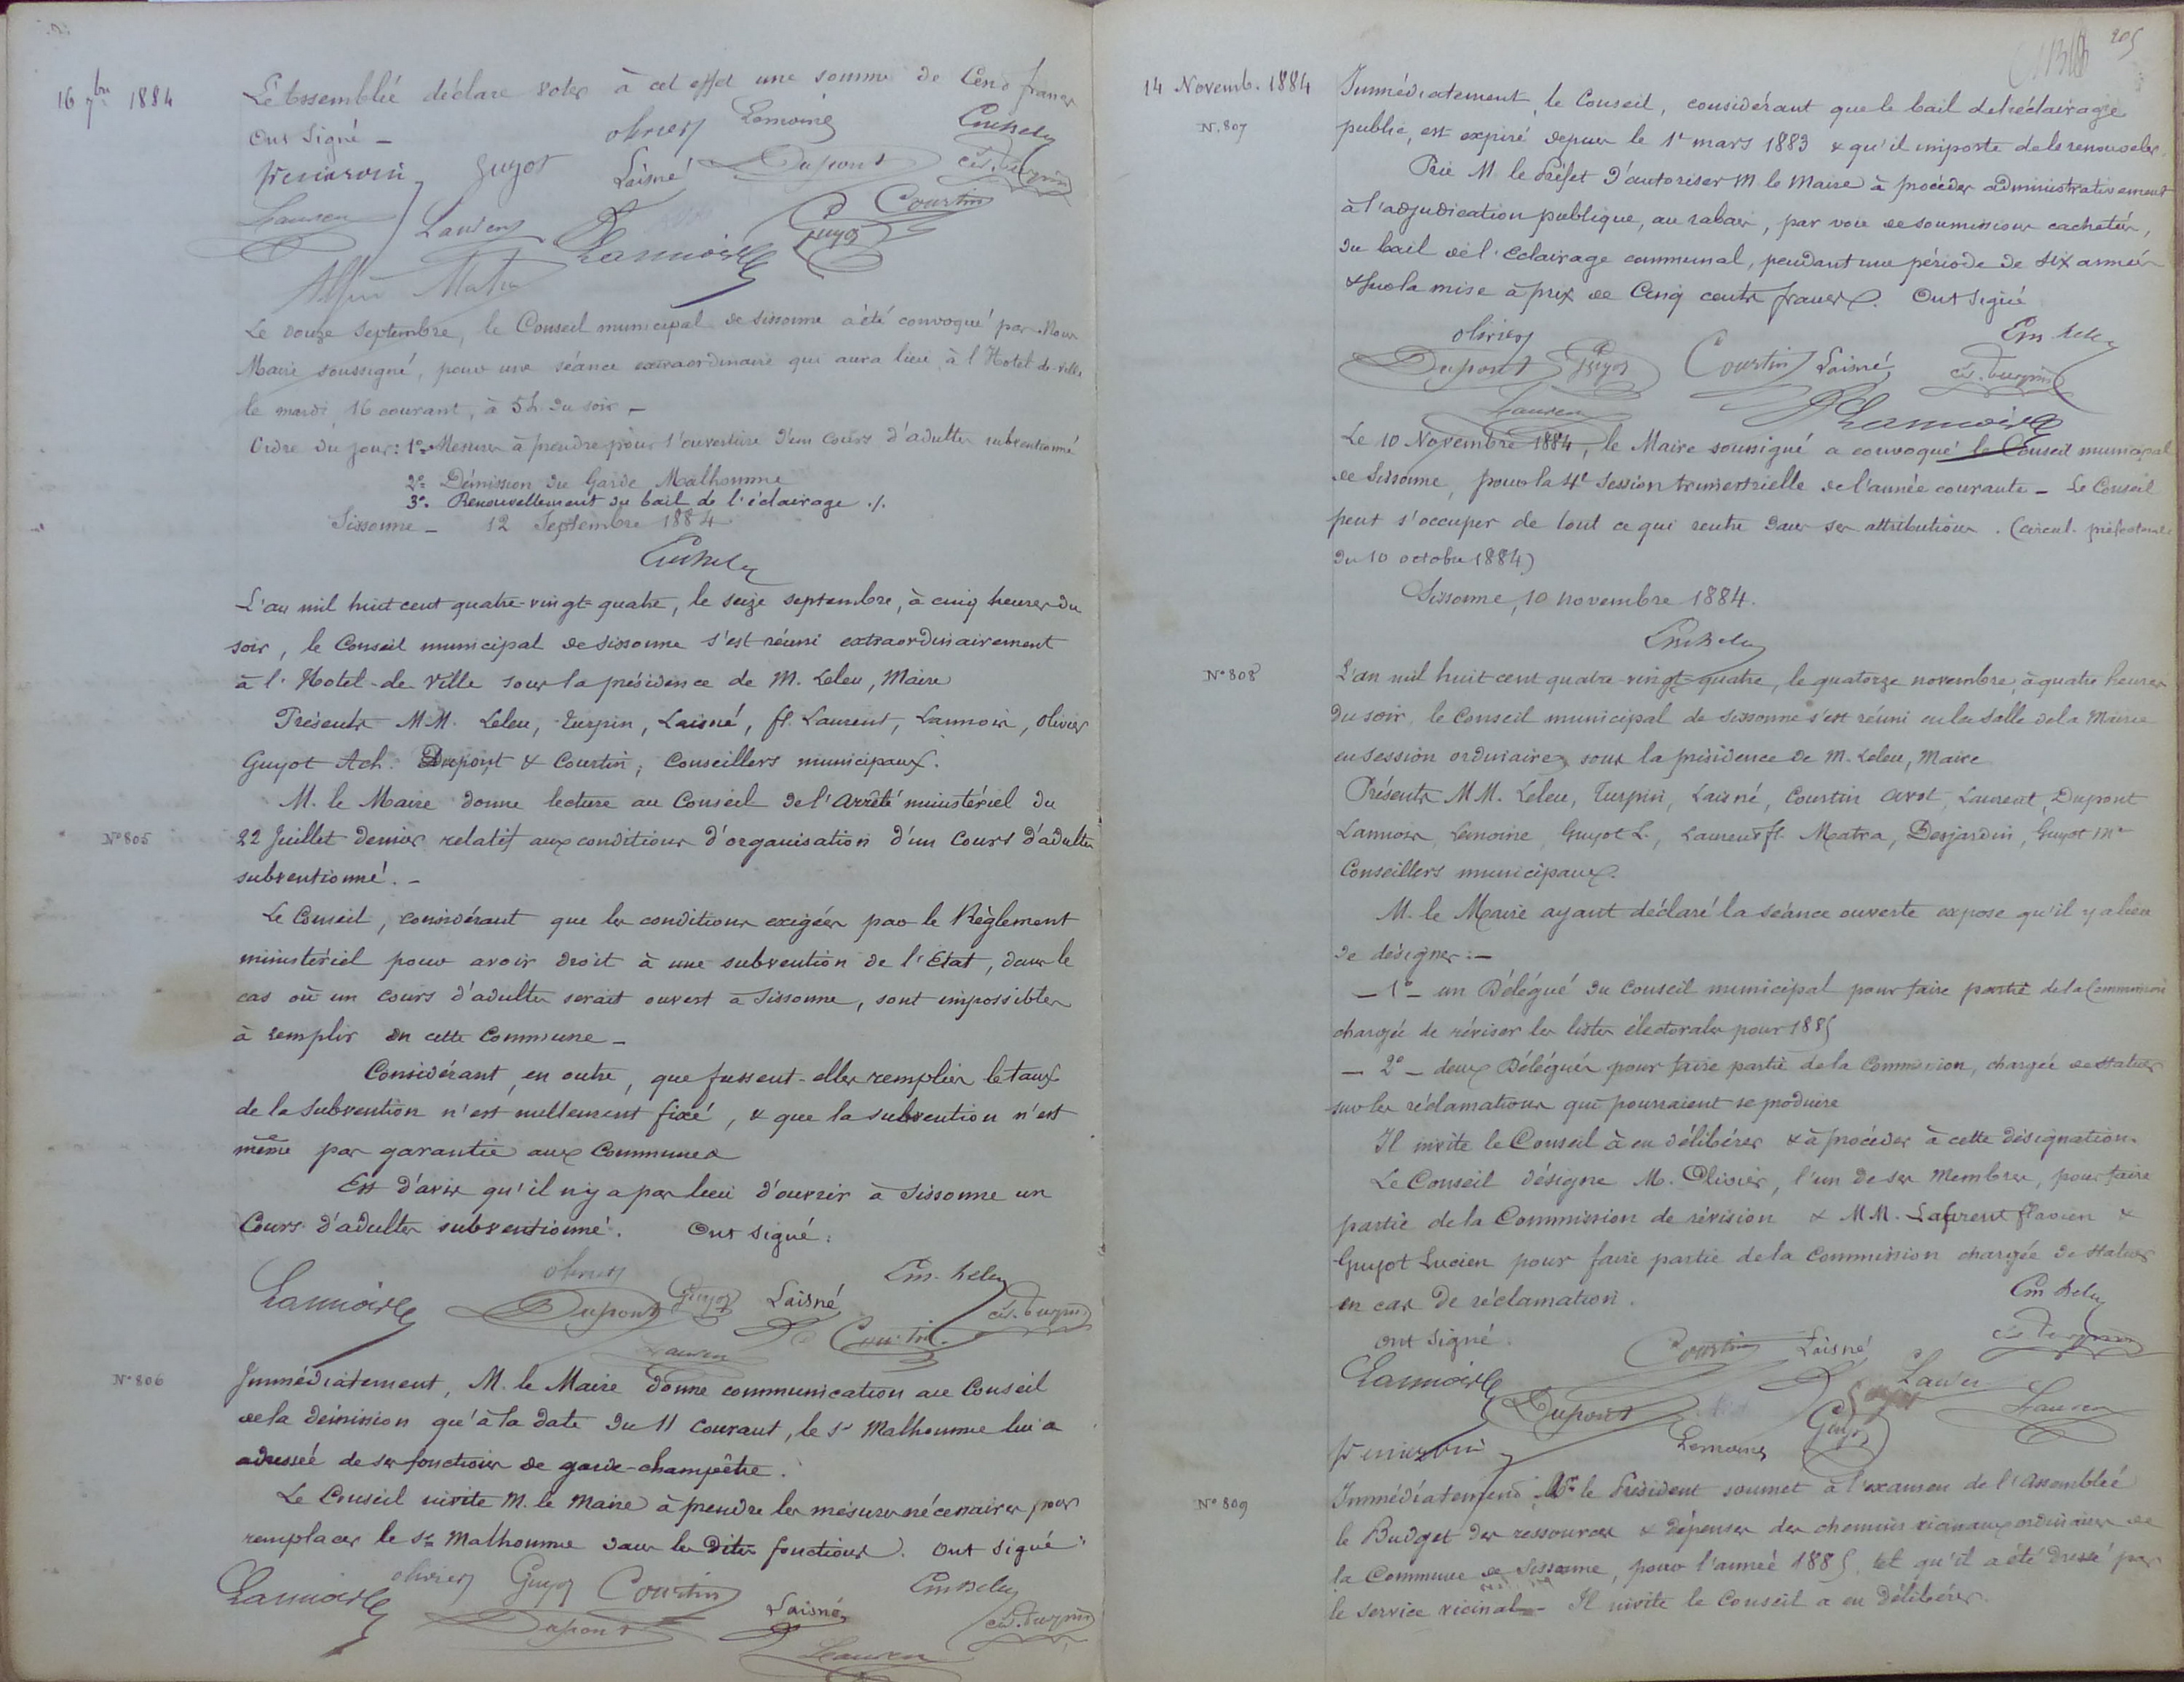 16 7bre 1884
L'Assemblée déclare voter à cet effet une somme de Cent francs
Ont Signé -
Olivier Lemoine Em Leleu
Guyot Laisné Dupont Cés. Turpin
Laurent Laurent Lannois Guyot Courtin
Alfred Matra
Le douze Septembre, le Conseil municipal de Sissonne a été convoqué par Nous
Maire soussigné, pour une séance extraordinaire qui aura lieu à l'Hotel-de-ville
le mardi 16 courant, à 5h. du soir -
Ordre du jour: 1° Mesures à prendre pour l'ouverture d'un Cours d'adultes subventionné
2° Démission du Garde Malhomme
3° Renouvellement du bail de l'éclairage ./.
Sissonne - 12 Septembre 1884
Em Leleu
L'an mil huit cent quatre-vingt-quatre, le seize septembre, à cinq heures du
soir, le Conseil municipal de Sissonne s'est réuni extraordinairement
à l'Hotel-de-Ville sous la présidence de M. Leleu, Maire
Présents MM. Leleu, Turpin, Laisné, fl. Laurent, Lannois, Olivier
Guyot Ach. Dupont & Courtin, Conseillers municipaux.
M. le Maire donne lecture au Conseil de l'Arrêté ministériel du
N° 805
22 Juillet dernier relatif aux conditions d'organisation d'un Cours d'adultes
subventionné. -
Le Conseil, considérant que les conditions exigées par le Règlement
ministériel pour avoir droit à une subvention de l'Etat, dans le
cas où un Cours d'adultes serait ouvert à Sissonne, sont impossibles
à remplir en cette Commune -
Considérant, en outre, que fussent-elles remplies le taux
de la subvention n'est nullement fixé, & que la subvention n'est
même pas garantie aux Communes
Est d'avis qu'il n'y a pas lieu d'ouvrir à Sissonne un
Cours d'adultes subventionné. Ont signé:
Olivier Em. Leleu
Lannois Dupont Guyot Laisné Cés. Turpin
Laurent Courtin
N° 806
Immédiatement, M. le Maire donne communication au Conseil
de la démission qu'à la date du 11 courant, le Sr Malhomme lui a
adressée de ses fonctions de garde-champêtre.
Le Conseil invite M. le Maire à prendre les mesures nécessaires pour
remplacer le Sr Malhomme dans les dites fonctions. Ont signé:
Lannois Olivier Guyot Courtin Em Leleu
Dupont Laisné Cés. Turpin
Laurent
205
14 Novemb. 1884
N. 807
Immédiatement, le Conseil, considérant que le bail de l'éclairage
public, est expiré depuis le 1r mars 1883 & qu'il importe de le renouveler.
Prie M. le Préfet d'autoriser M. le Maire à procéder administrativement
à l'adjudication publique, au rabais, par voie de soumissions cachetées,
du bail de l'éclairage communal, pendant une période de six années
& sur la mise à prix de Cinq cents francs. Ont signé
Olivier Em Leleu
Dupont Guyot Courtin Laisné Cés. Turpin
Laurent Lannois
Le 10 Novembre 1884, le Maire soussigné a convoqué le Conseil municipal
de Sissonne, pour la 4e Session trimestrielle de l'année courante - Le Conseil
peut s'occuper de tout ce qui rentre dans ses attributions. (circul. préfectorale
du 10 octobre 1884)
Sissonne, 10 novembre 1884.
Em Leleu
N° 808
L'an mil huit cent quatre-vingt-quatre, le quatorze novembre, à quatre heures
du soir, le Conseil municipal de Sissonne s'est réuni en la Salle de la Mairie
en session ordinaire, sous la présidence de M. Leleu, Maire
Présents MM. Leleu, Turpin, Laisné, Courtin Laurent, Dupont
Lannois, Lemoine, Guyot L., Laurent fl. Matra, Desjardin, Guyot
Conseillers municipaux.
M. le Maire ayant déclaré la séance ouverte expose qu'il y a lieu
de désigner: -
- 1° - un Délégué du Conseil municipal pour faire partie de la Commission
chargée de réviser les listes électorales pour 1885
- 2° - deux Délégués pour faire partie de la Commission, chargée de statuer
sur les réclamations qui pourraient se produire
Il invite le Conseil à en délibérer & à procéder à cette désignation.
Le Conseil désigne M. Olivier, l'un de ses Membres, pour faire
partie de la Commission de révision & MM. Laurent flavien &
Guyot Lucien pour faire partie de la Commission chargée de statuer
en cas de réclamation.
Ont signé. Em Leleu
Lannois Courtin Laisné Cés. Turpin
Dupont Guyot Laurent Laurent
Lemoine Guyot
N° 809
Immédiatement, Mr le Président soumet à l'examen de l'Assemblée
le Budget des ressources & dépenses des chemins vicinaux ordinaires de
la Commune de Sissonne, pour l'année 1885, tel qu'il a été dressé par
le service vicinal - Il invite le Conseil à en délibérer.